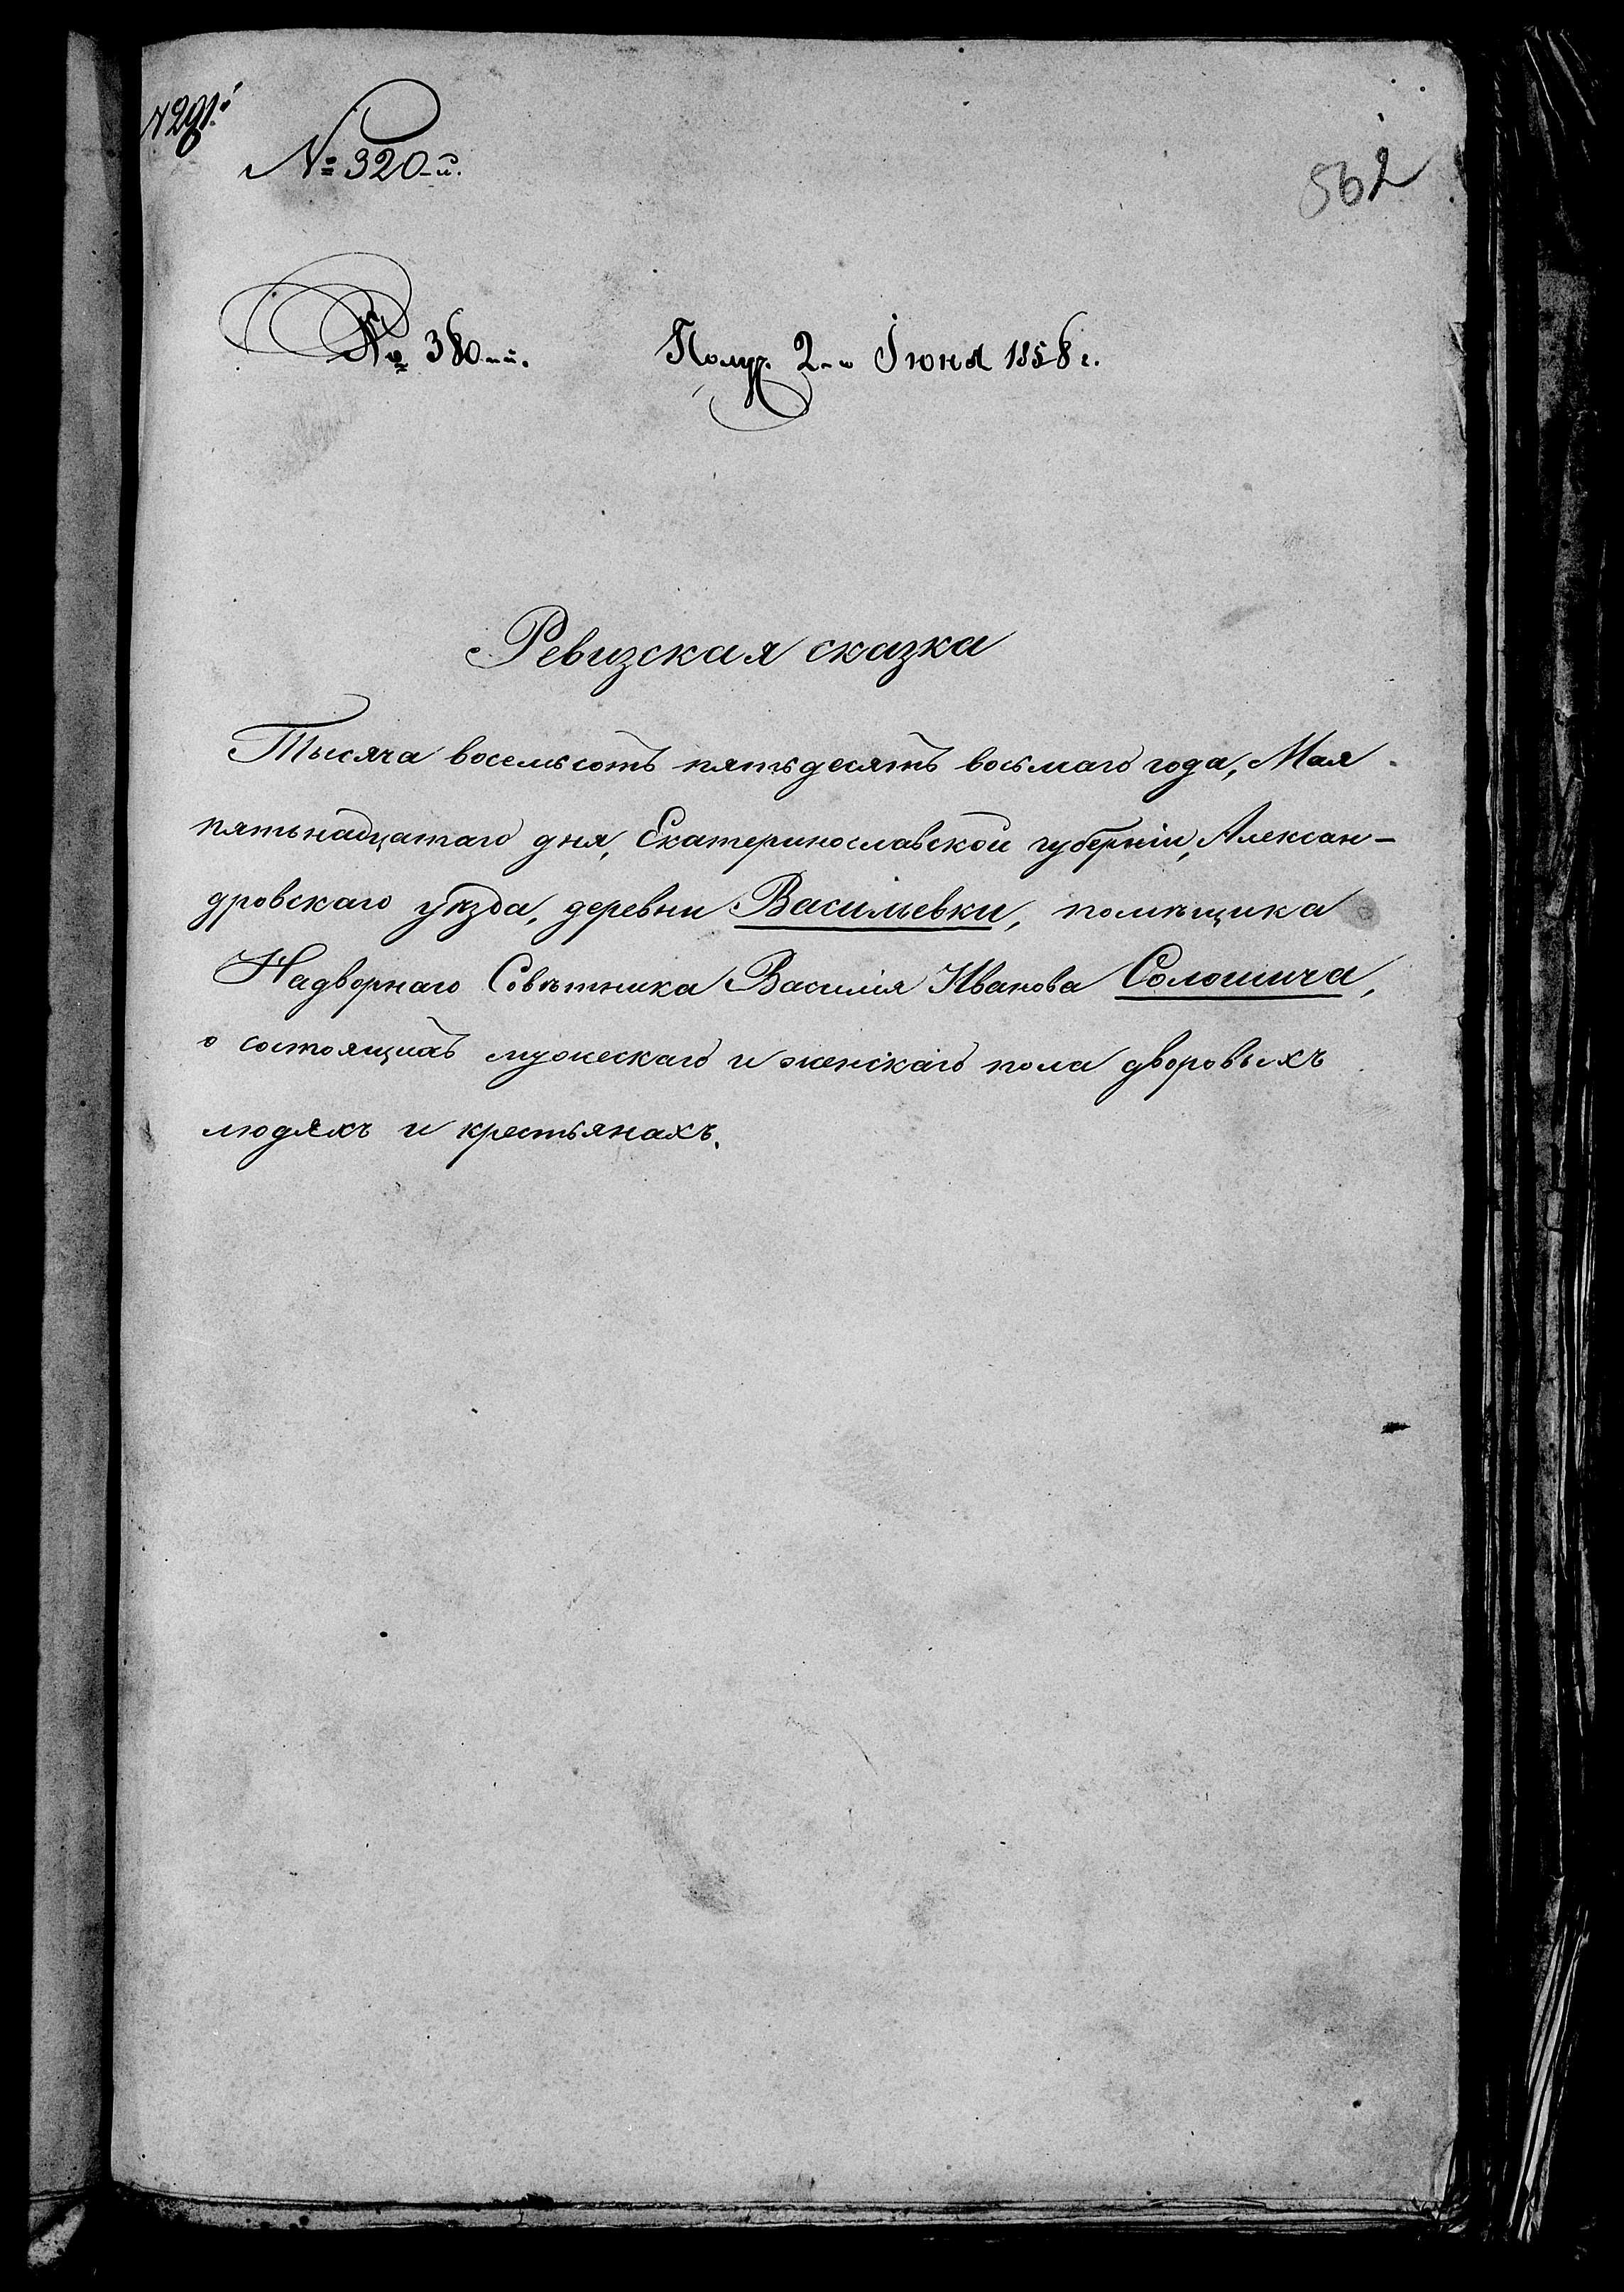 № 291.
№ 320-й.
562
№ 380-й.
Получ. 2-о Іюня 1858 г.
Ревизская сказка
Тысяча восемьсотъ пятьдесятъ восьмаго года, Мая
пятьнадцатаго дня, Екатеринославской губерніи, Алексан-
дровскаго уѣзда, деревни Васильевки, помѣщика
Надворнаго Совѣтника Василія Иванова Солошича,
о состоящихъ мужескаго и женскаго пола дворовыхъ
людяхъ и крестьянахъ.